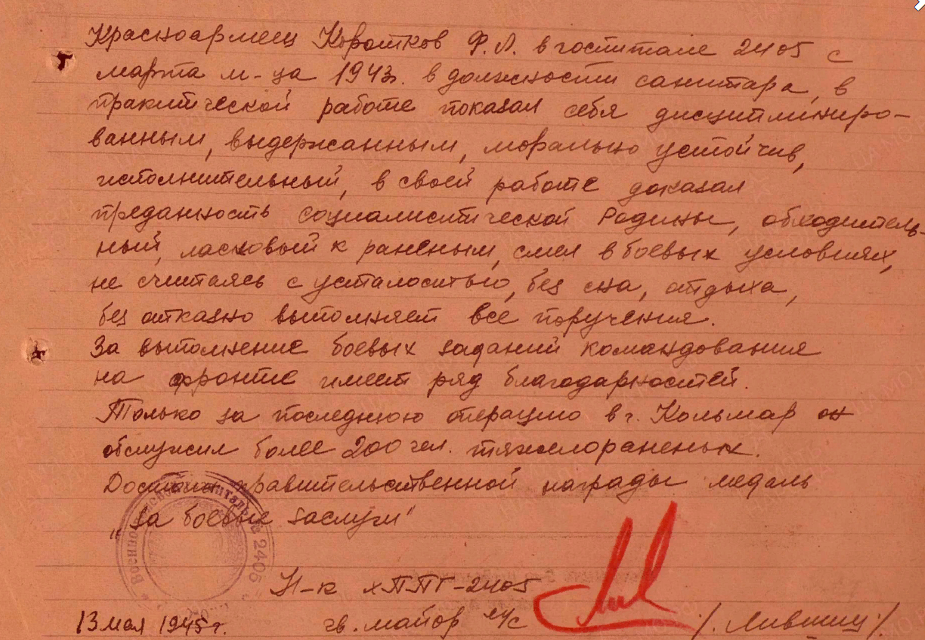 Красноармеец Коротков Ф.Л. в госпитале 2405 с
марта м-ца 1943г. в должности санитара, в
практической работе показал себя дисциплиниро-
ванным, выдержанным, морально устойчив,
исполнительный, в своей работе доказал
преданность социалистической Родины, обходитель-
ный, ласковый к раненым, смел в боевых условиях,
не считаясь с усталостью, без сна, отдыха,
без отказно выполняет все поручения.
За выполнение боевых заданий командования
на фронте имеет ряд благодарностей.
Только за последнюю операцию в г. Кольмар он
обслужил более 200 чел. тяжелораненых.
Достоин правительственной награды медаль
„За боевые заслуги"
Н-к ХППГ-2405
13 мая 1945г. гв. майор м/с /Лившиц/
2405